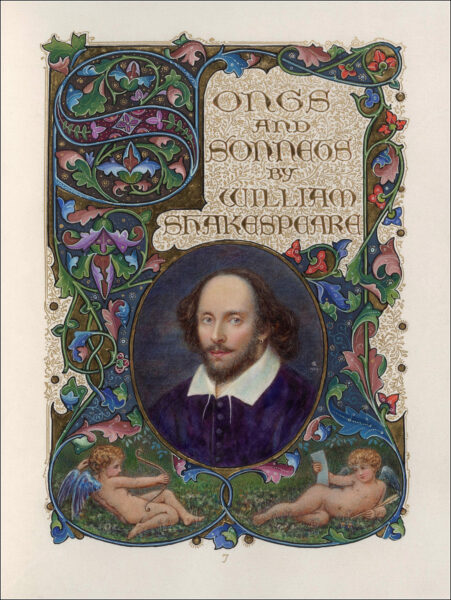 SONGS
AND
SONNETS
BY
WILLIAM
SHAKESPEARE
7